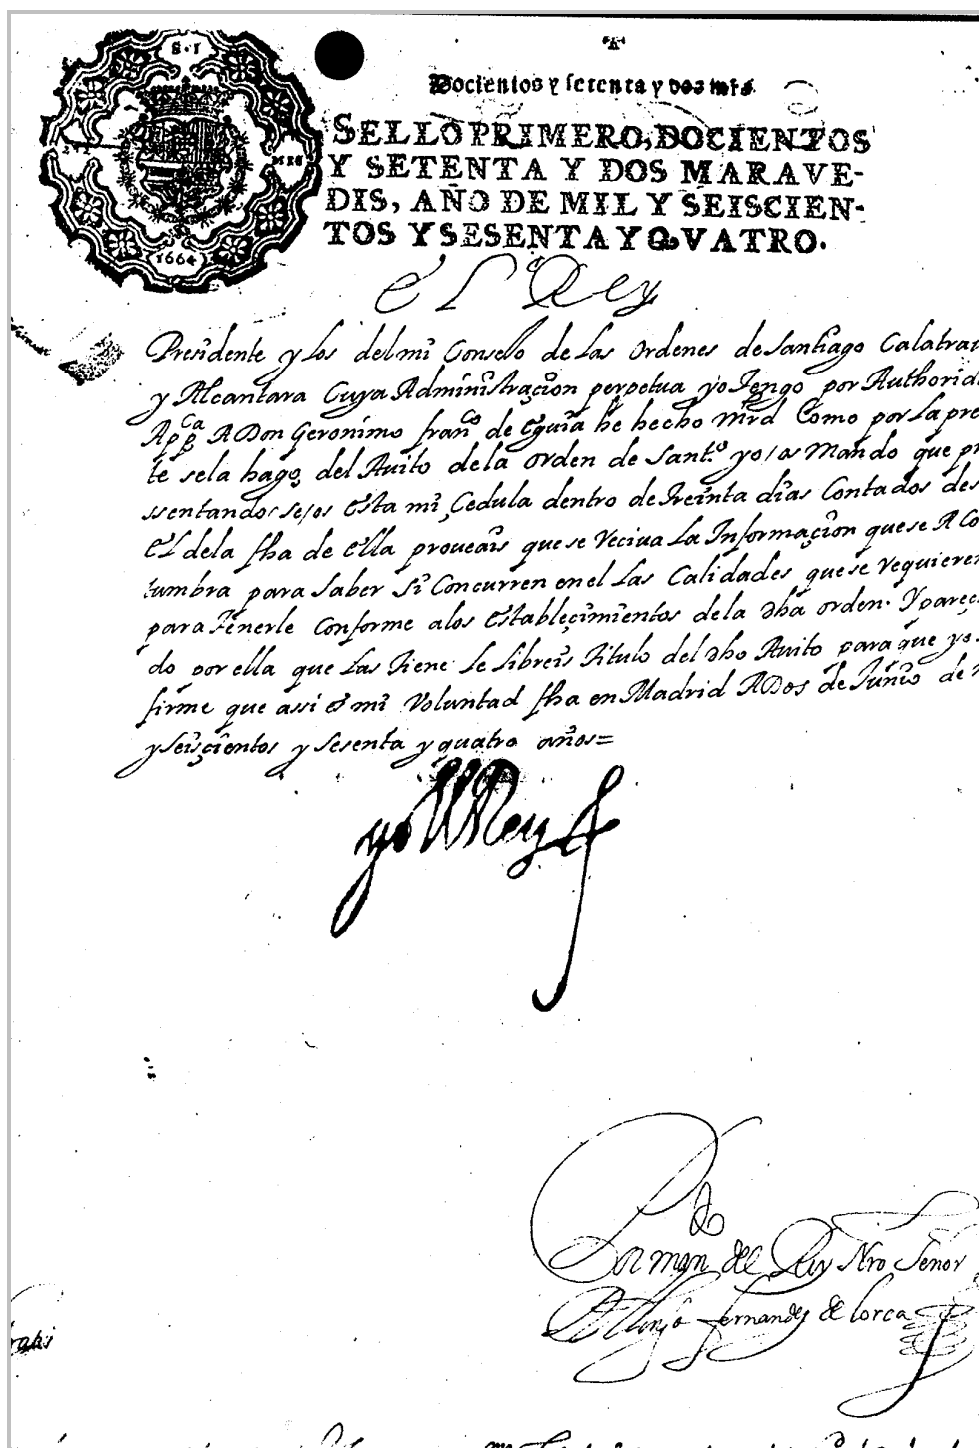 Docientos y setenta y dos mrs.
SELLO PRIMERO, DOCIENTOS
Y SETENTA Y DOS MARAVE-
DIS, AÑO DE MIL Y SEISCIEN-
TOS Y SESENTA Y QVATRO.
1664
el Rey
Presidente y los del mi Conselo de las ordenes de Santiago Calatrav
y Alcantara Cuya Administraçion perpetua yo Tengo por Authorida
App^ca A Don Geronimo fran^co de eguia he hecho Mrd Como por la pre
te se la hago, del Auito de la orden de Sant.^o yo os Mando que pre
ssentandoseos esta mi Çedula dentro de Treinta dias Contados des
el de la fha de ella proueais que se Reciua La Informaçion que se ACo
tumbra para Saber Si Concurren en el Las Calidades que se requieren
para Tenerle Conforme a los establecimientos de la dha orden. Y pareçi
do por ella que Las Tiene Le libreis Titulo del dho Auito para que yo
firme que assi es mi Voluntad fha en Madrid A Dos de Junio de
y Seisçientos y Sesenta y quatro años=
yo el Rey
Por man^do del Rey Nro Señor
Alonso fernandez de lorca